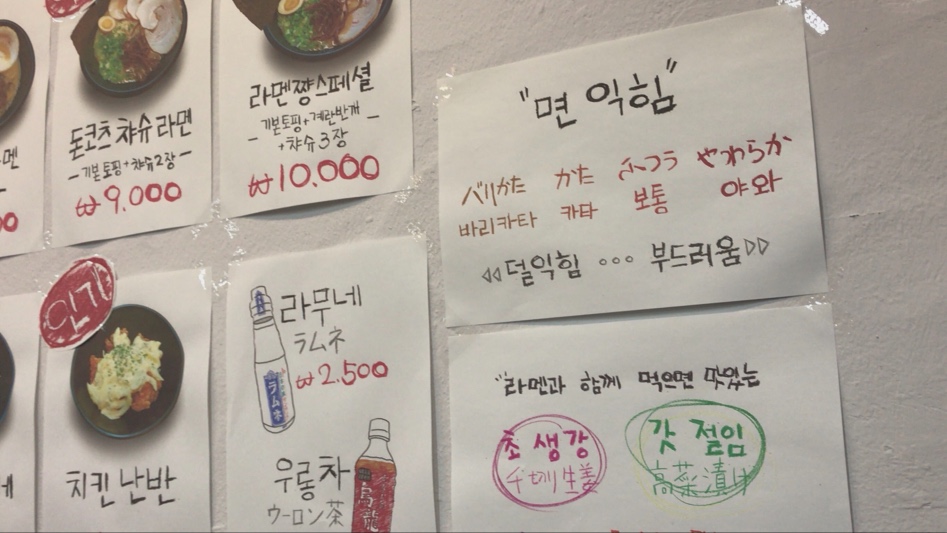 돈코츠 챠슈 라멘
-기본토핑+챠슈2장-
₩9.000
라멘쨩스페셜
-기본토핑+계란반개
+챠슈3장-
₩10.000
"면 익힘"
バリかた かた ふつう やわらか
바리카타 카타 보통 야와
◁◁덜익힘 ∘∘∘ 부드러움▷▷
인기
치킨난반
라무네
ラムネ
₩2.500
ラムネ
우롱차
ウーロン茶
烏龍
"라멘과 함께 먹으면 맛있는
초생강
千切り生姜
갓 절임
高菜漬け